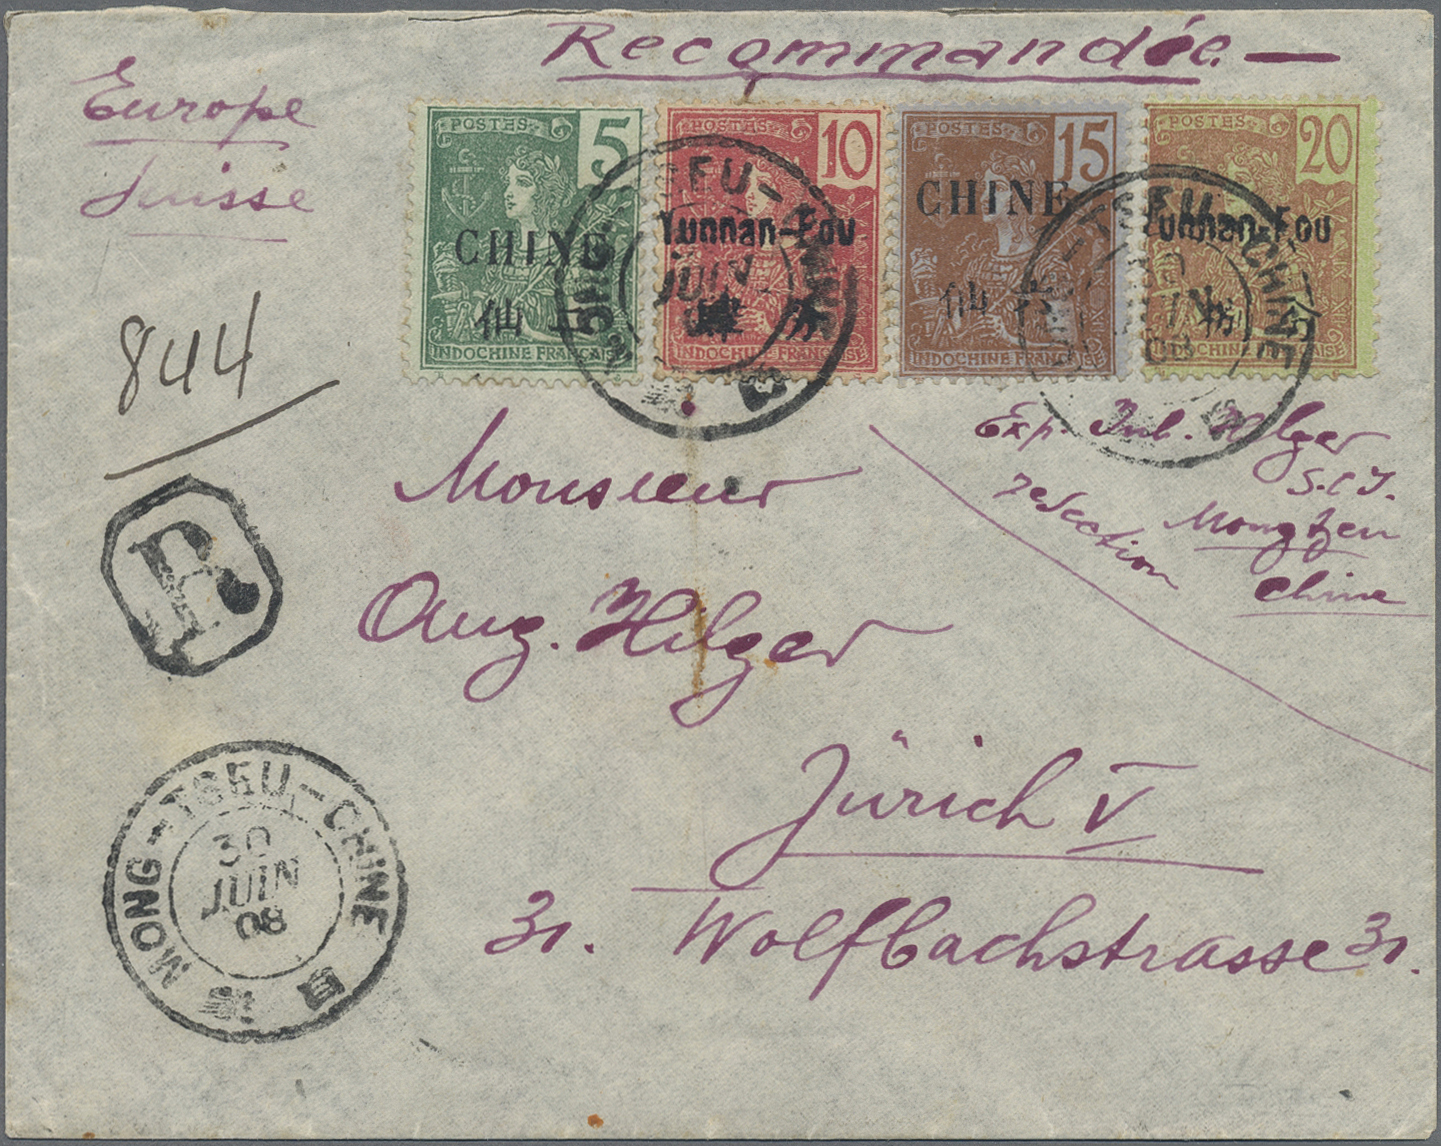 Recommandée
Europe
Suisse
POSTES 5
CHINE
仙
INDOCHINE FRANÇAISE
POSTES 10
Yunnan-Fou
INDOCHINE FRANÇAISE
POSTES 15
CHINE
仙
INDOCHINE FRANÇAISE
POSTES 20
Yunnan-Fou
INDOCHINE FRANÇAISE
JUIN
CHINE
08
844
R
Exp. Jul. Hilger
S.C.I.
2e Section
Mongtzeu
Chine
Monsieur
Aug. Hilger
Zürich V
31. Wolfbachstrasse 31.
MONG-TSEU-CHINE
30
JUIN
08
蒙 自